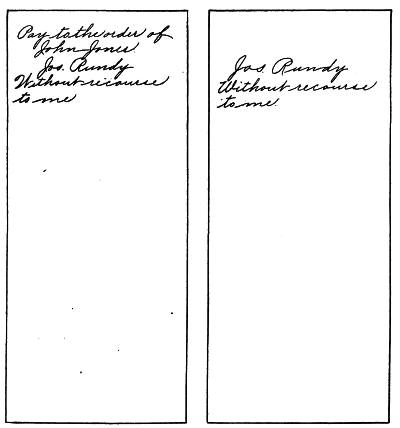 Pay to the order of
John Jones
Jos. Rundy
Without recourse
to me
Jos. Rundy
Without recourse
to me.